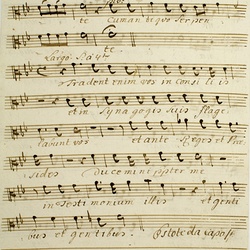 te Cum antiqvo Serpen
te
Largo
Tradent enim vos in Consiliis
et in Synagogis suis flage
labunt vos et ante Reges et Præ
sides ducemini propter me
in testimonium illis et genti
bus et gentibus.